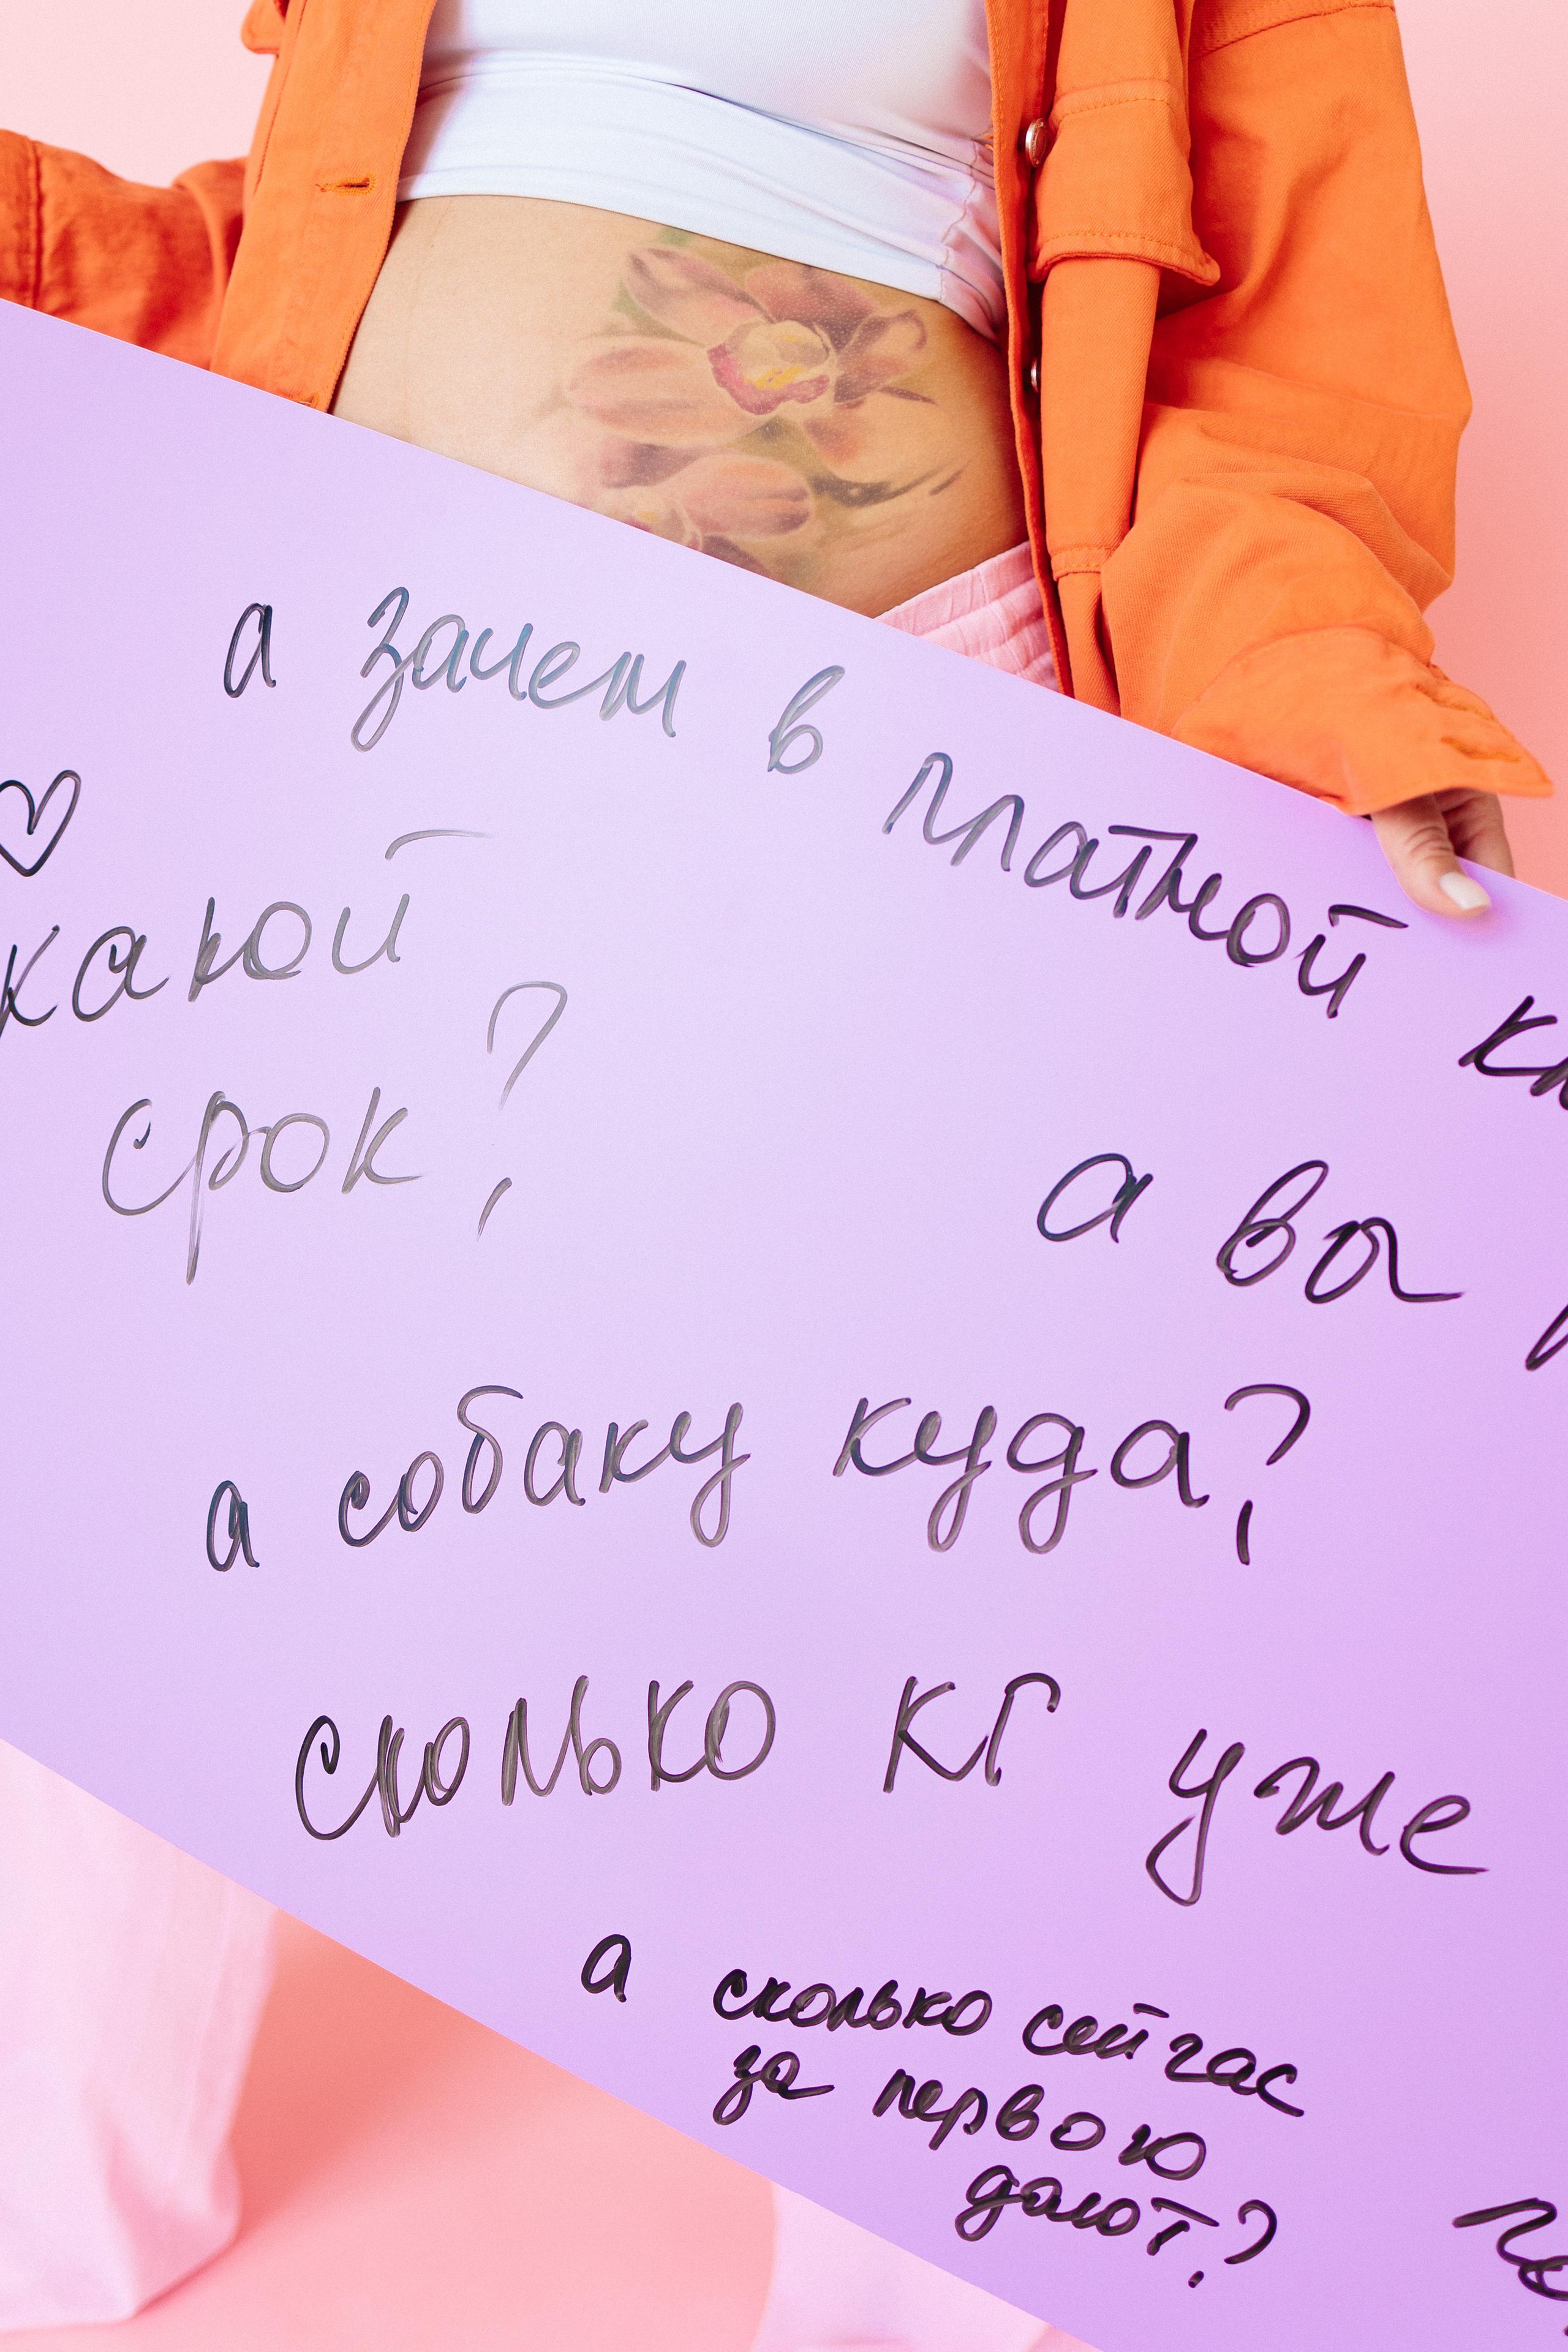 а зачем в платной
♡
какой
срок?
а
а собаку куда?
сколько кг уже
а сколько сейчас
за первою
дают?